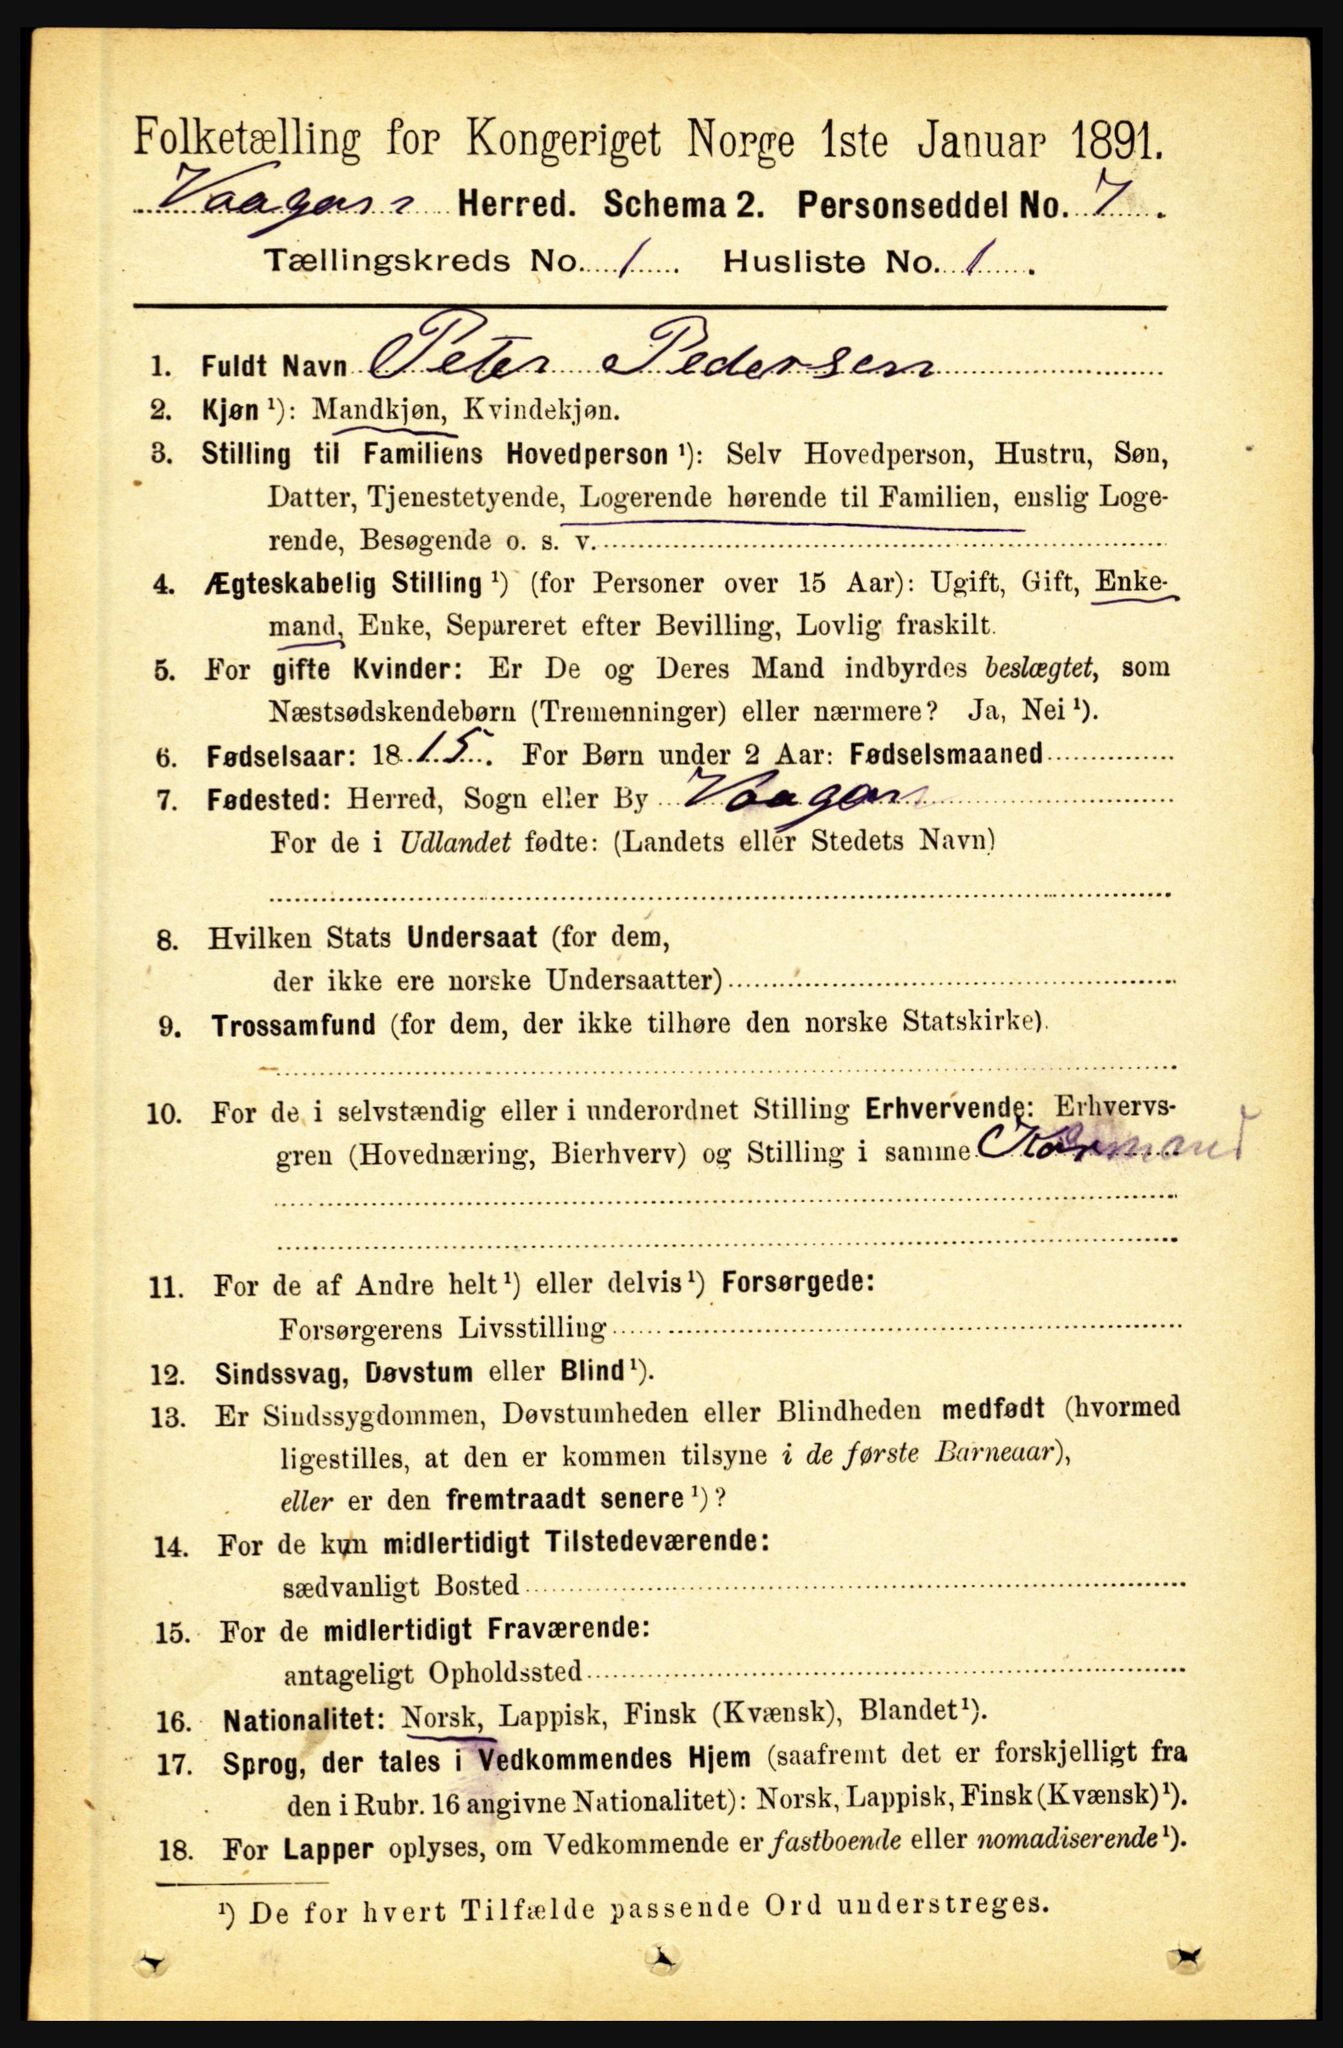 Folketælling for Kongeriget Norge 1ste Januar 1891.
Vaagan Herred. Schema 2. Personseddel No. 7.
Tællingskreds No. 1. Husliste No. 1.
1. Fuldt Navn Peter Pedersen
2. Kjøn ¹): Mandkjøn, Kvindekjøn.
3. Stilling til Familiens Hovedperson ¹): Selv Hovedperson, Hustru, Søn,
Datter, Tjenestetyende, Logerende hørende til Familien, enslig Loge-
rende, Besøgende o. s. v.
4. Ægteskabelig Stilling ¹) (for Personer over 15 Aar): Ugift, Gift, Enke-
mand, Enke, Separeret efter Bevilling, Lovlig fraskilt.
5. For gifte Kvinder: Er De og Deres Mand indbyrdes beslægtet, som
Næstsødskendebørn (Tremenninger) eller nærmere? Ja, Nei ¹).
6. Fødselsaar: 1815. For Børn under 2 Aar: Fødselsmaaned
7. Fødested: Herred, Sogn eller By Vaagan
For de i Udlandet fødte: (Landets eller Stedets Navn)
8. Hvilken Stats Undersaat (for dem,
der ikke ere norske Undersaatter)
9. Trossamfund (for dem, der ikke tilhøre den norske Statskirke).
10. For de i selvstændig eller i underordnet Stilling Erhvervende: Erhvervs-
gren (Hovednæring, Bierhverv) og Stilling i samme
11. For de af Andre helt ¹) eller delvis ¹) Forsørgede:
Forsørgerens Livsstilling
12. Sindssvag, Døvstum eller Blind ¹).
13. Er Sindssygdommen, Døvstumheden eller Blindheden medfødt (hvormed
ligestilles, at den er kommen tilsyne i de første Barneaar),
eller er den fremtraadt senere ¹)?
14. For de kun midlertidigt Tilstedeværende:
sædvanligt Bosted
15. For de midlertidigt Fraværende:
antageligt Opholdssted
16. Nationalitet: Norsk, Lappisk, Finsk (Kvænsk), Blandet ¹).
17. Sprog, der tales i Vedkommendes Hjem (saafremt det er forskjelligt fra
den i Rubr. 16 angivne Nationalitet): Norsk, Lappisk, Finsk (Kvænsk) ¹).
18. For Lapper oplyses, om Vedkommende er fastboende eller nomadiserende ¹).
¹) De for hvert Tilfælde passende Ord understreges.